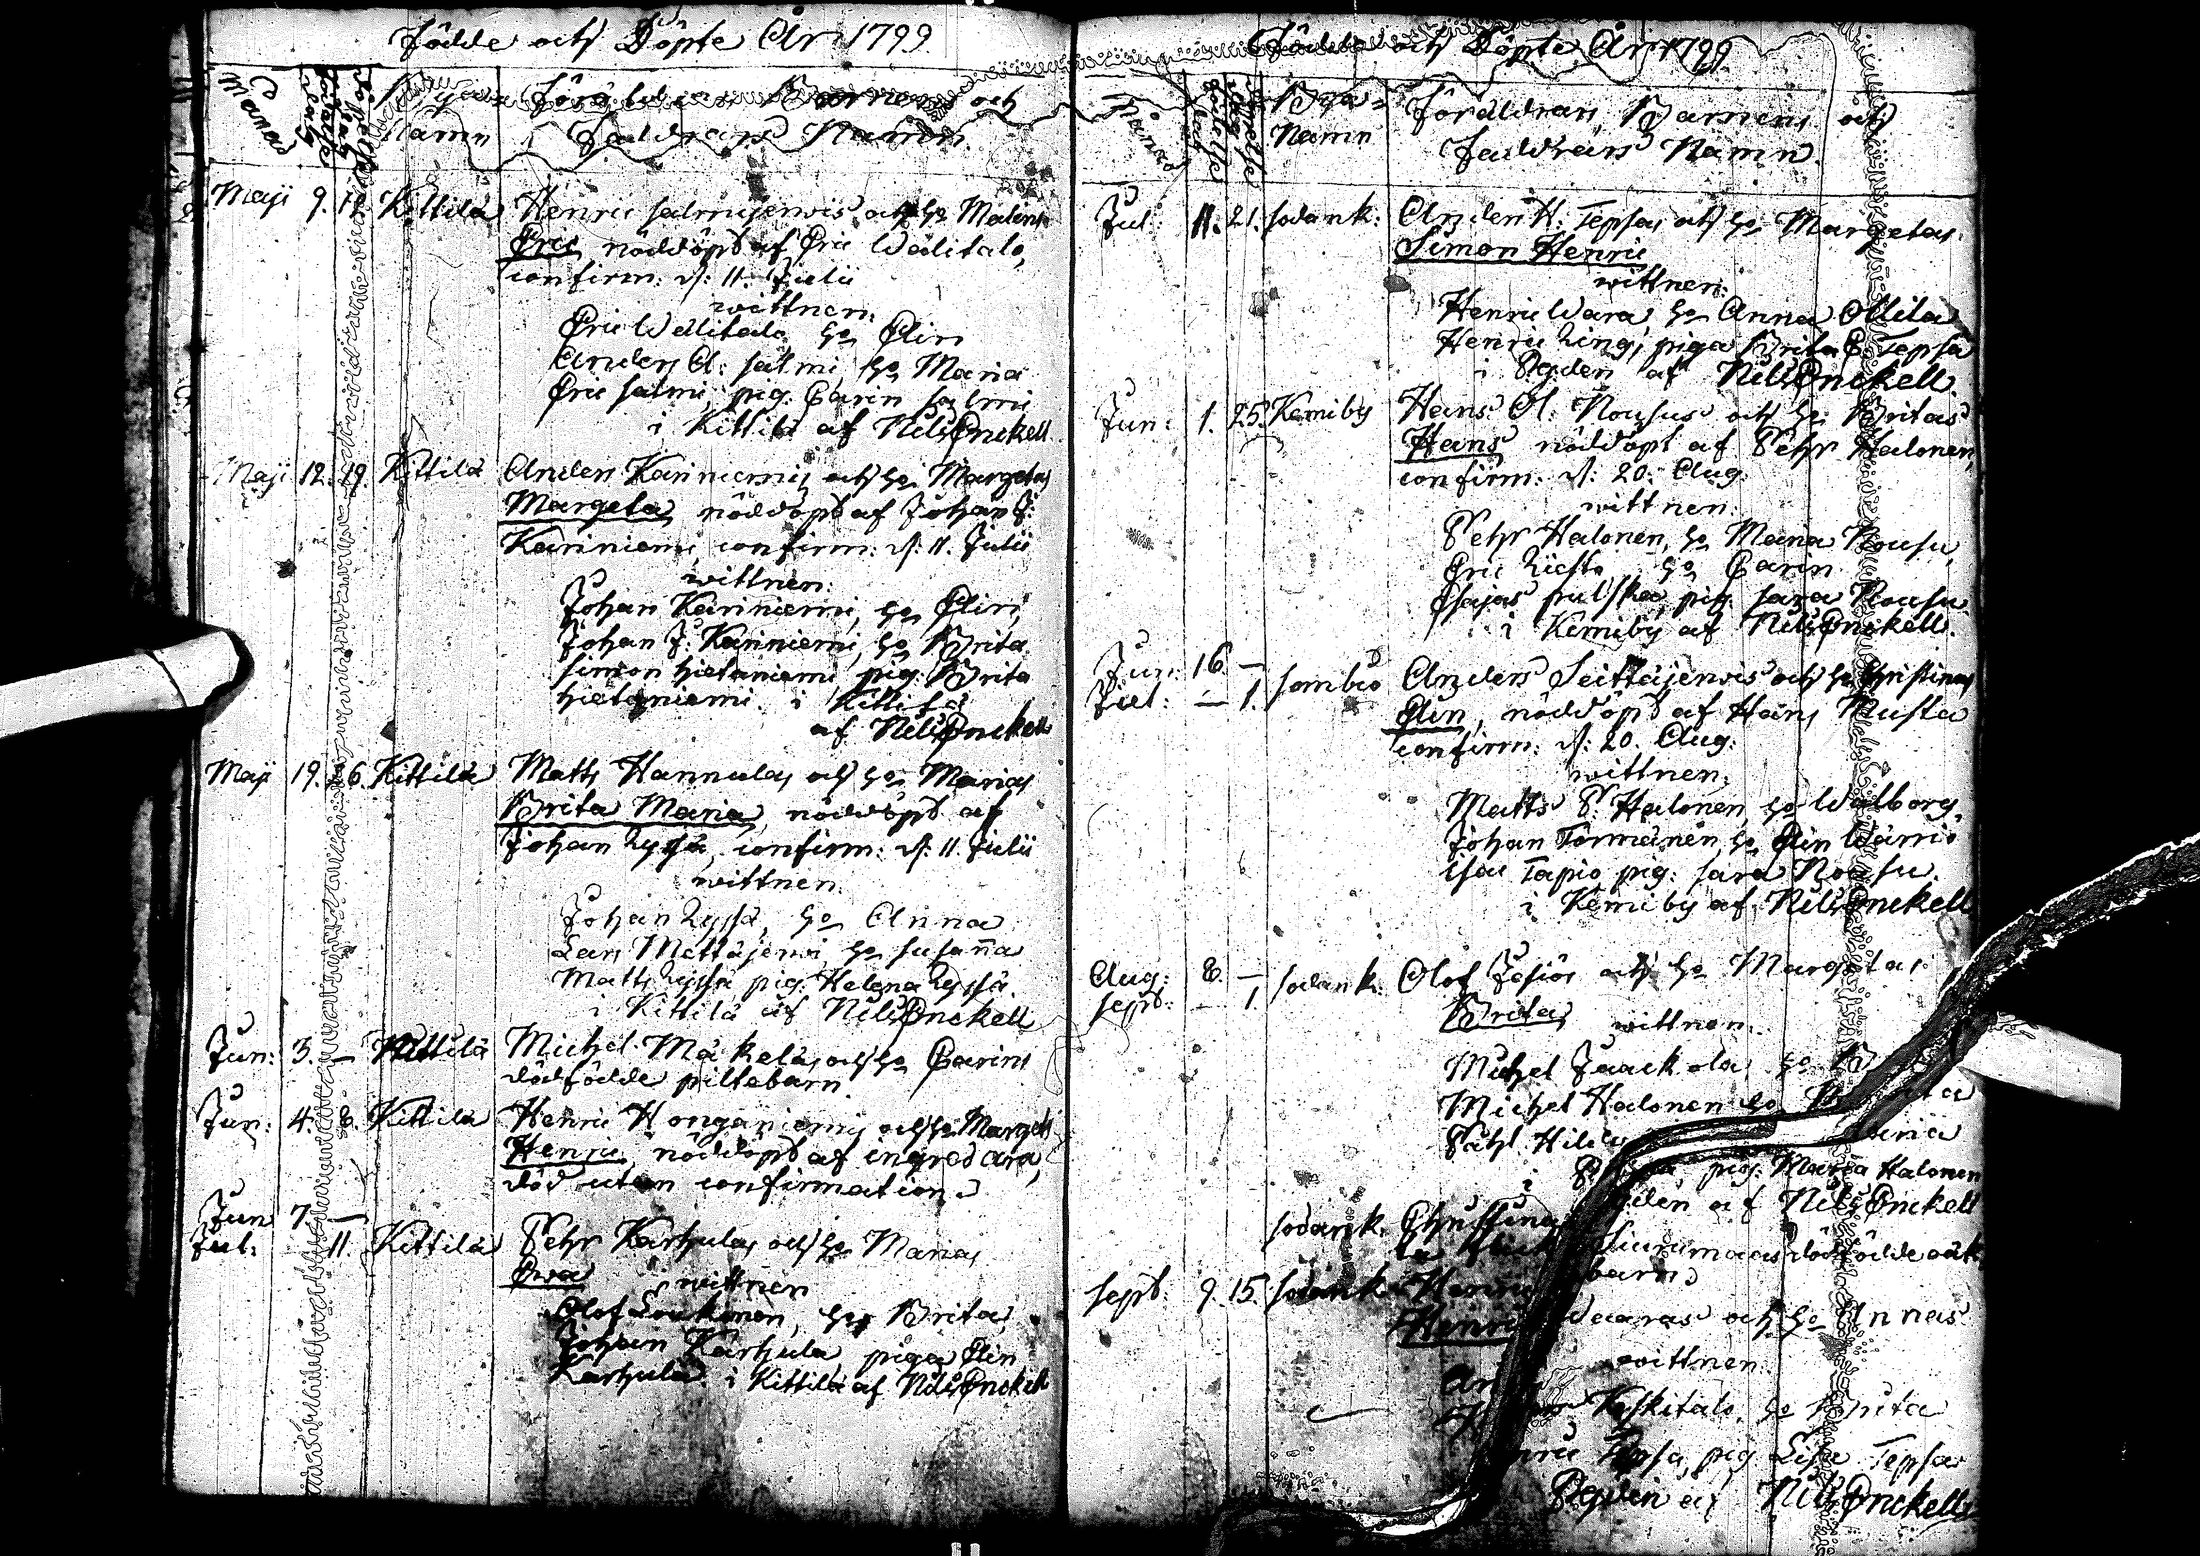 Födde och Döpte År 1799
Månad
Födelse dag
Döpelse dag
Namn
Föräldrars Barnens och
Faddrars Namn.
Maji 9. Kittilä Henric Salmijerwis och ho Malins
Eric, nöddöpt af Eric Wälitalo,
confirm: d: 11. Julii
wittnen:
Eric Wälitalo, ho Elin
Anders A: Salmi, ho Maria
Eric Salmi, pig: Carin Salmi
i Kittilä af Nils Enckell
Maji 12. 19. Kittilä Anders Kariniemis och ho Margetas
Margeta, nöddöpt af Johan J:
Kariniemi, confirm: d: 11. Julii
wittnen:
Johan Kariniemi, ho Elin,
Johan J: Kariniemi, ho Brita
Simon Hietaniemi pig: Brita
Hietaniemi. i Kittilä
af Nils Enckell
Maji 19. 26. Kittilä Matts Hannulas och ho Marias
Brita Maria, nöddöpt af
Johan Zyssä, confirm: d: 11. Julii
wittnen:
Johan Zyssä, ho Anna
Lars Mettäjerwi, ho Susanna
Matts Zyssä pig: Helena Zyssä.
i Kittilä af Nils Enckell
Jun: 3. — Kittilä Michel Mäkeläs och ho Carins
dödfödde piltebarn.
Jun: 4. 8. Kittilä Henric Honganiemis och ho Margets
Henric, nöddöpt af ingred ara,
död utan confirmation.
Jun 7. —
Jul: 11. Kittilä Pehr Karhulas och ho Marias
Ewa wittnen
Olof Loukonen, ho Brita,
Johan Karhula, piga Elin
Karhula. i Kittilä af Nils Enckell
Födde och Döpte År 1799
Månad
Födelse dag
Döpelse dag
Bya-
Namn
Föräldrars, Barnens och
Faddrars Namn.
Jul: 11. 21. Sodank: Anders H. Tepsas och ho Margetas
Simon Henric
wittnen:
Henric Wara, ho Anna Ollila
Henric Zing, piga Brita E. Tepsa
i Byden af Nils Enckell.
Jun: 1. 25. Kemiby Hans Ol: Nousus och ho Britas
Hans, nöddöpt af Pehr Halonen,
confirm: d: 20. Aug:
wittnen:
Pehr Halonen, ho Maria Nousu,
Eric Ziesto ho Carin
Esajas Pulska, pig: Sara Nousu
i Kemiby af Nils Enckell.
Jun: 16. —
Jul: — 1. Sombio Anders Seittäjerwis och ho Christinas
Elin, nöddöpt af Hans Musta
confirm: d: 20. Aug:
wittnen:
Matts P: Halonen, ho Walborg,
Johan Törmänen, ho Elin Wärriö
Isac Tapio pig: Sara Nousu.
i Kemiby af Nils Enckell
Aug: 8. —
Sept: — 1. Sodank: Olof Jesiös och ho Margetas
Brita wittnen:
Michel Jaackola ho
Michel Halonen ho
Påhl
pig: Maria Halonen
af Nils Enckell
Sodank. Christina
dödfödde oäk:
barn.
Sept: 9. 15. Sodank Henric Waaras och ho Annas
Henric
wittnen:
Keskitalo, ho Brita
Tepsa, pig Lisa Tepsa
Nils Enckell